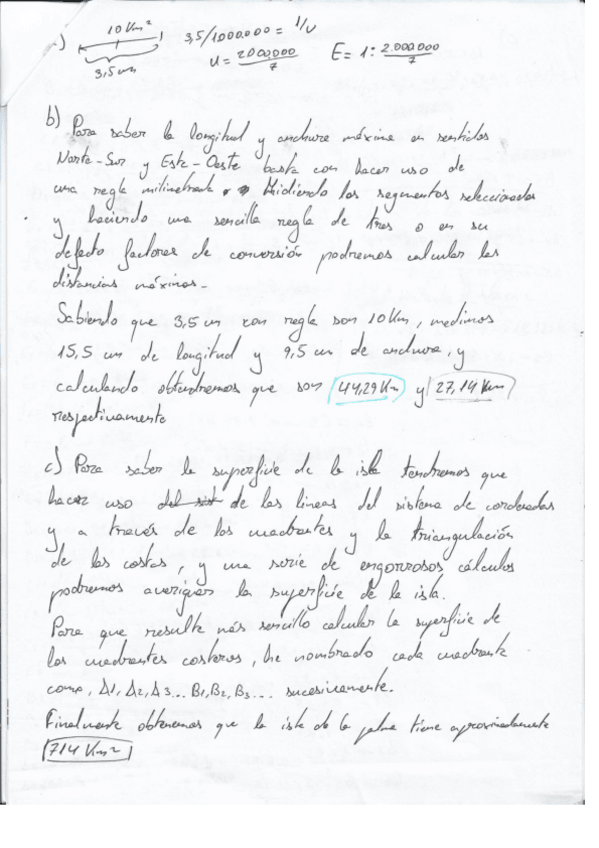 a) 10 Km² 3,5/1000.000 = 1/U
3,5 cm U = 2000.000/7 E = 1: 2.000.000/7
b) Para saber la longitud y anchura máxima en sentidos
Norte-Sur y Este-Oeste basta con hacer uso de
una regla milimetrada. Midiendo los segmentos seleccionados
y haciendo una sencilla regla de tres o en su
defecto factores de conversión podremos calcular las
distancias máximas.
Sabiendo que 3,5 cm con regla son 10 Km, medimos
15,5 cm de longitud y 9,5 cm de anchura, y
calculando obtendremos que son 44,29 Km y 27,14 Km
respectivamente
c) Para saber la superficie de la isla tendremos que
hacer uso de las lineas del sistema de cordenadas
y a través de los cuadrantes y la triangulación
de las costas, y una serie de engorrosos cálculos
podremos averiguar la superficie de la isla.
Para que resulte más sencillo calcular la superficie de
los cuadrantes costeros, he nombrado cada cuadrante
como, A1, A2, A3... B1, B2, B3... sucesivamente.
Finalmente obtenemos que la isla de la palma tiene aproximadamente
714 Km²